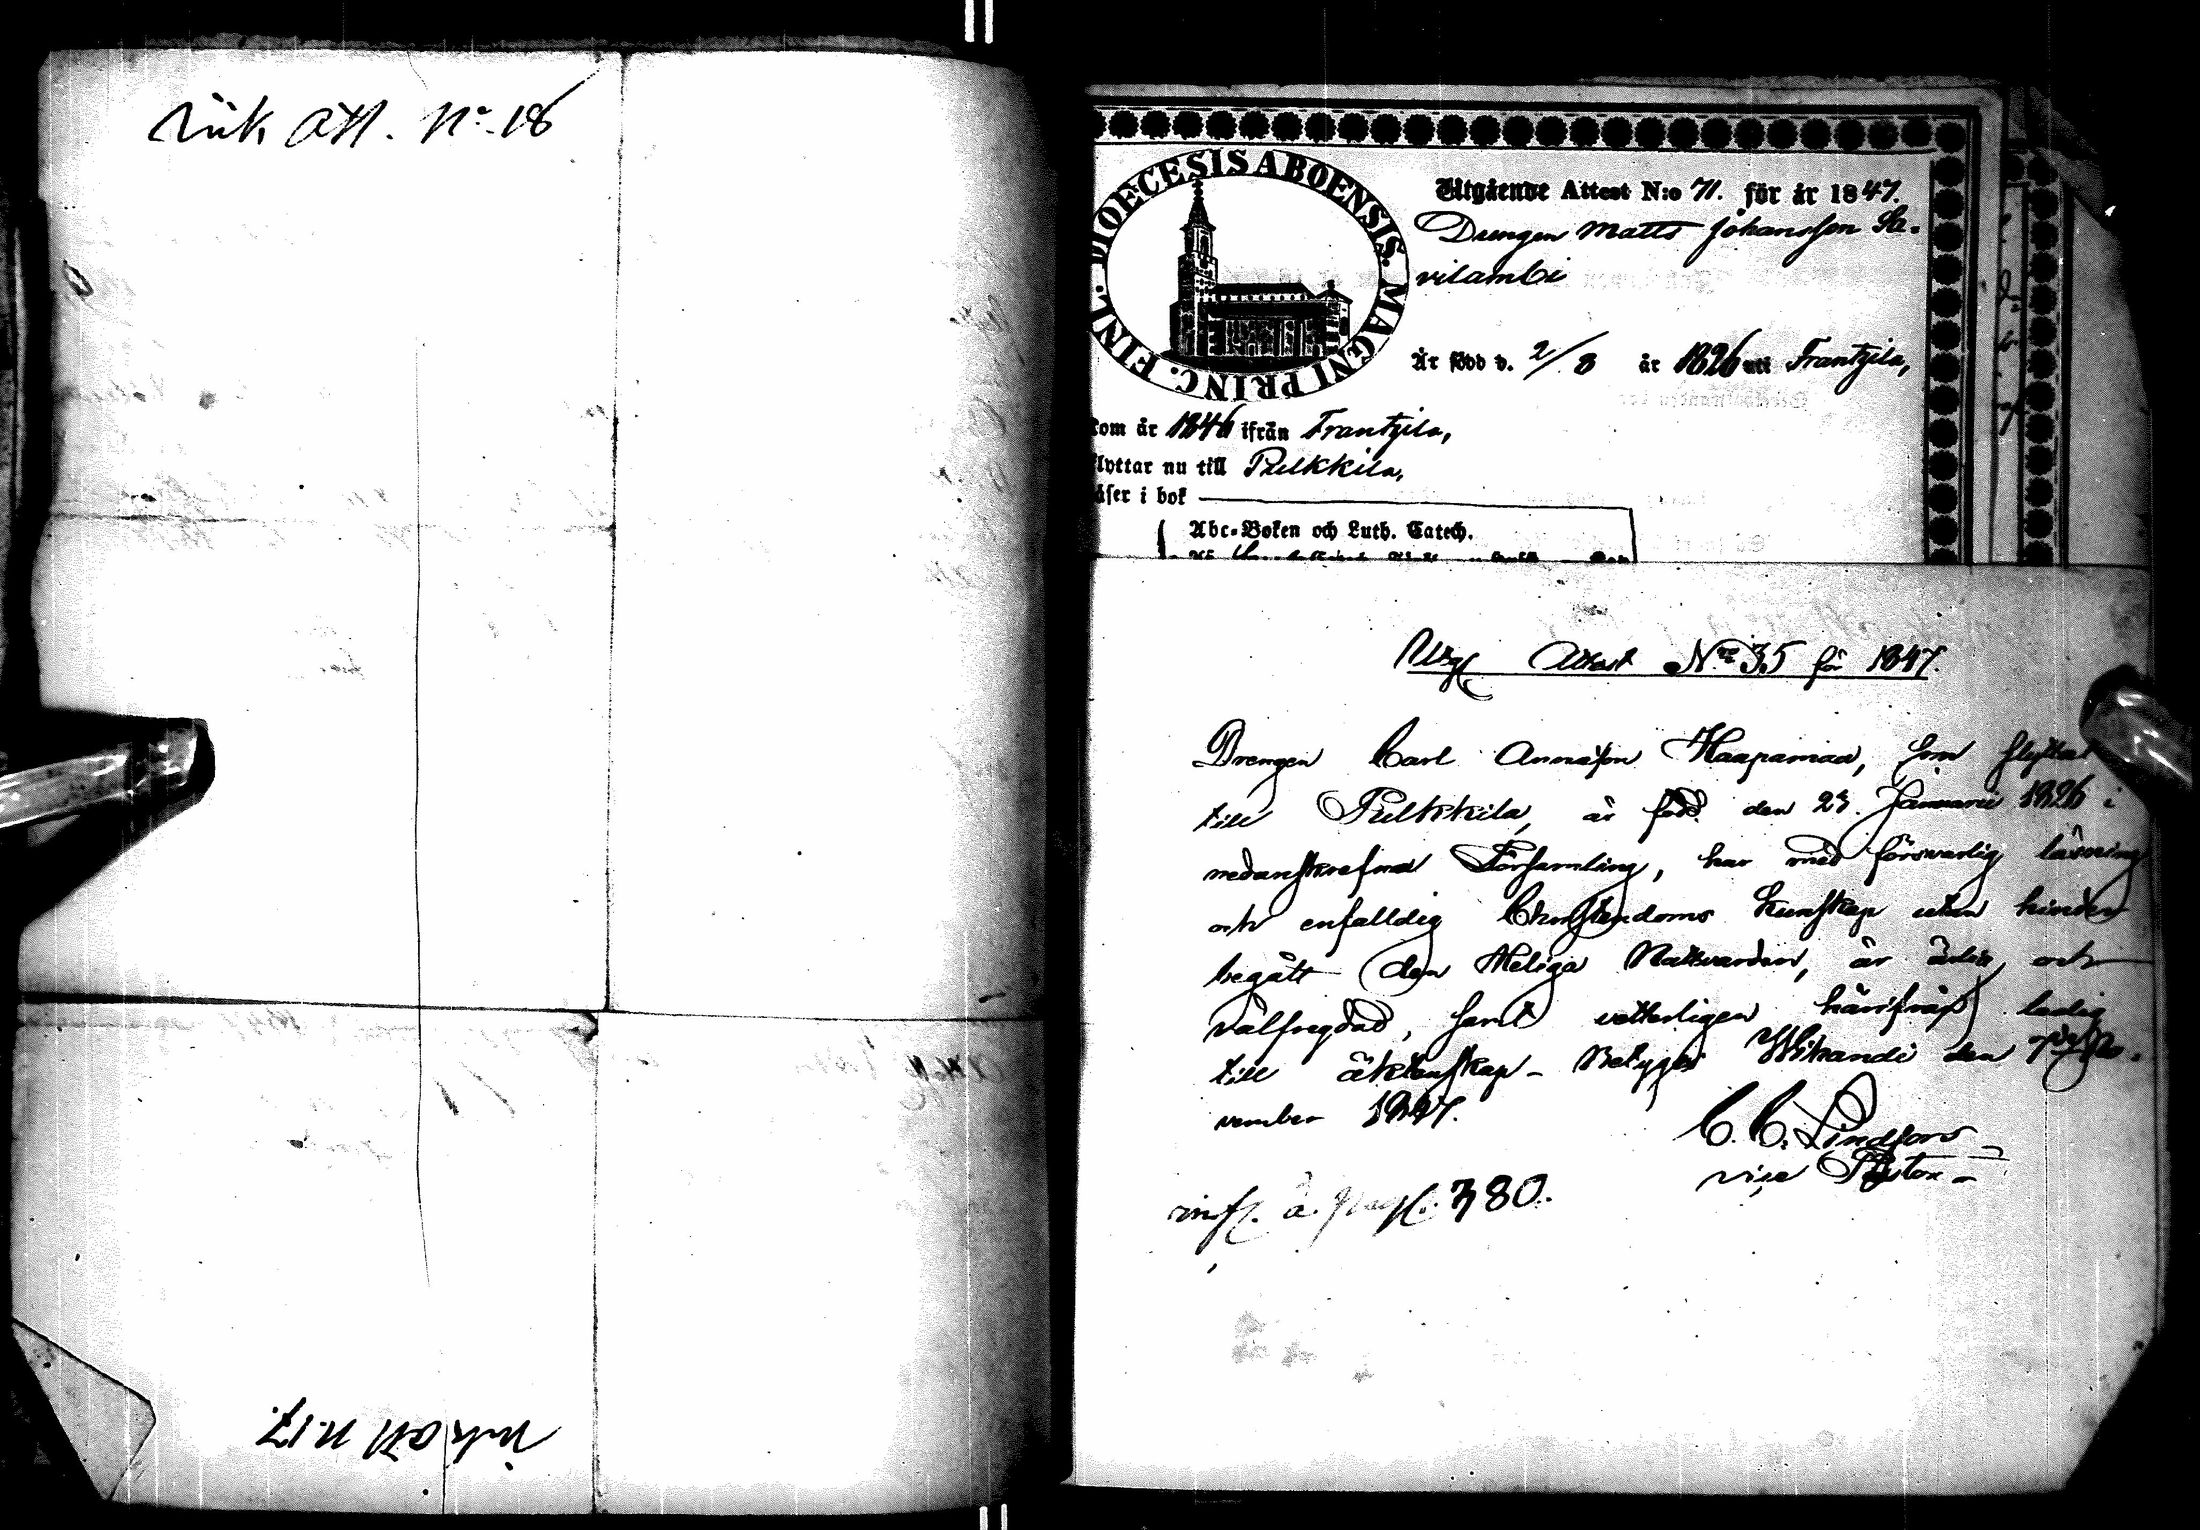 Ink Att. No. 18
ink Att N. 17.
DIOECESIS ABOENSIS. MAGNI PRINC. FINL.
Utgående Attest N:o 71. för år 1847.
Drengen Matts Johansson Sa-
vilambi
Är född d. 2/8 år 1826 uti Frantzila,
kom år 1846 ifrån Frantzila,
flyttar nu till Pulkkila,
läser i bok
Abc-Boken och Luth. Catech.
Utg. Attest No 35 för 1847.
Drengen Carl Haapamaa, som flyttar
till Pulkkila, är född den 23. Januarii 1826 i
nedanskrefna Församling, har med försvarlig läsning
och enfalldig Christendoms kunskap utan hinder
begått den Heliga Nattvarden, är ärlig och
välfregdad, samt vetterligen härifrån ledig
till äktenskap - Betygar Wihandi den No-
vember 1847.
C. C. Lindfors
vice Pastor
infl. å pag. 380.